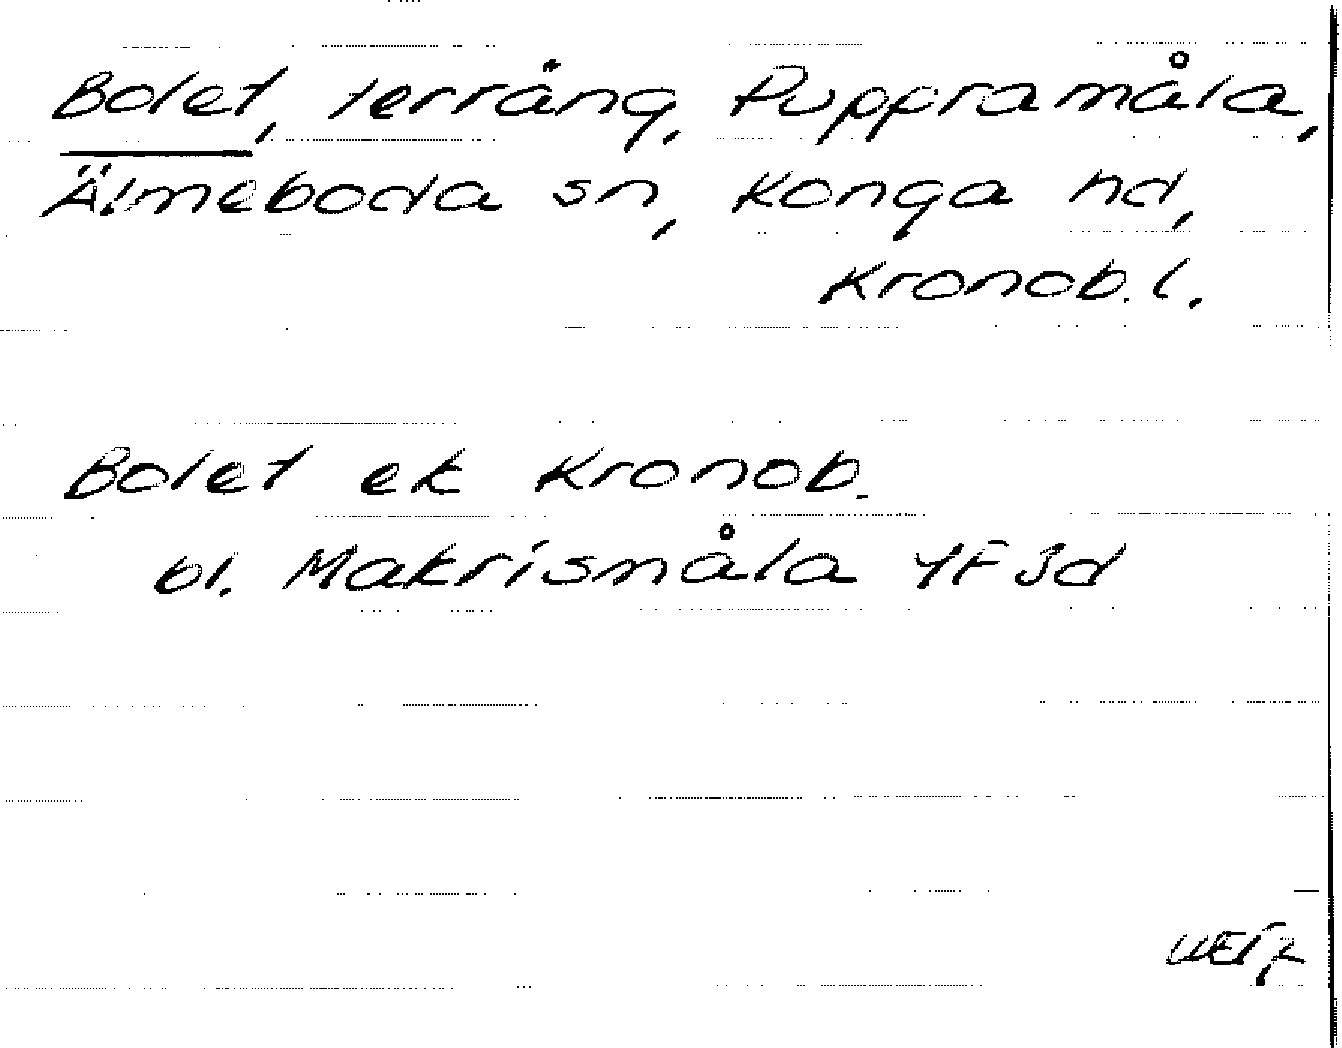 Bolet, terräng, Puppramåla,
Älmeboda sn, Konga hd,
Kronob. l.
Bolet ek Kronob.
bl. Makrismåla 4F3d